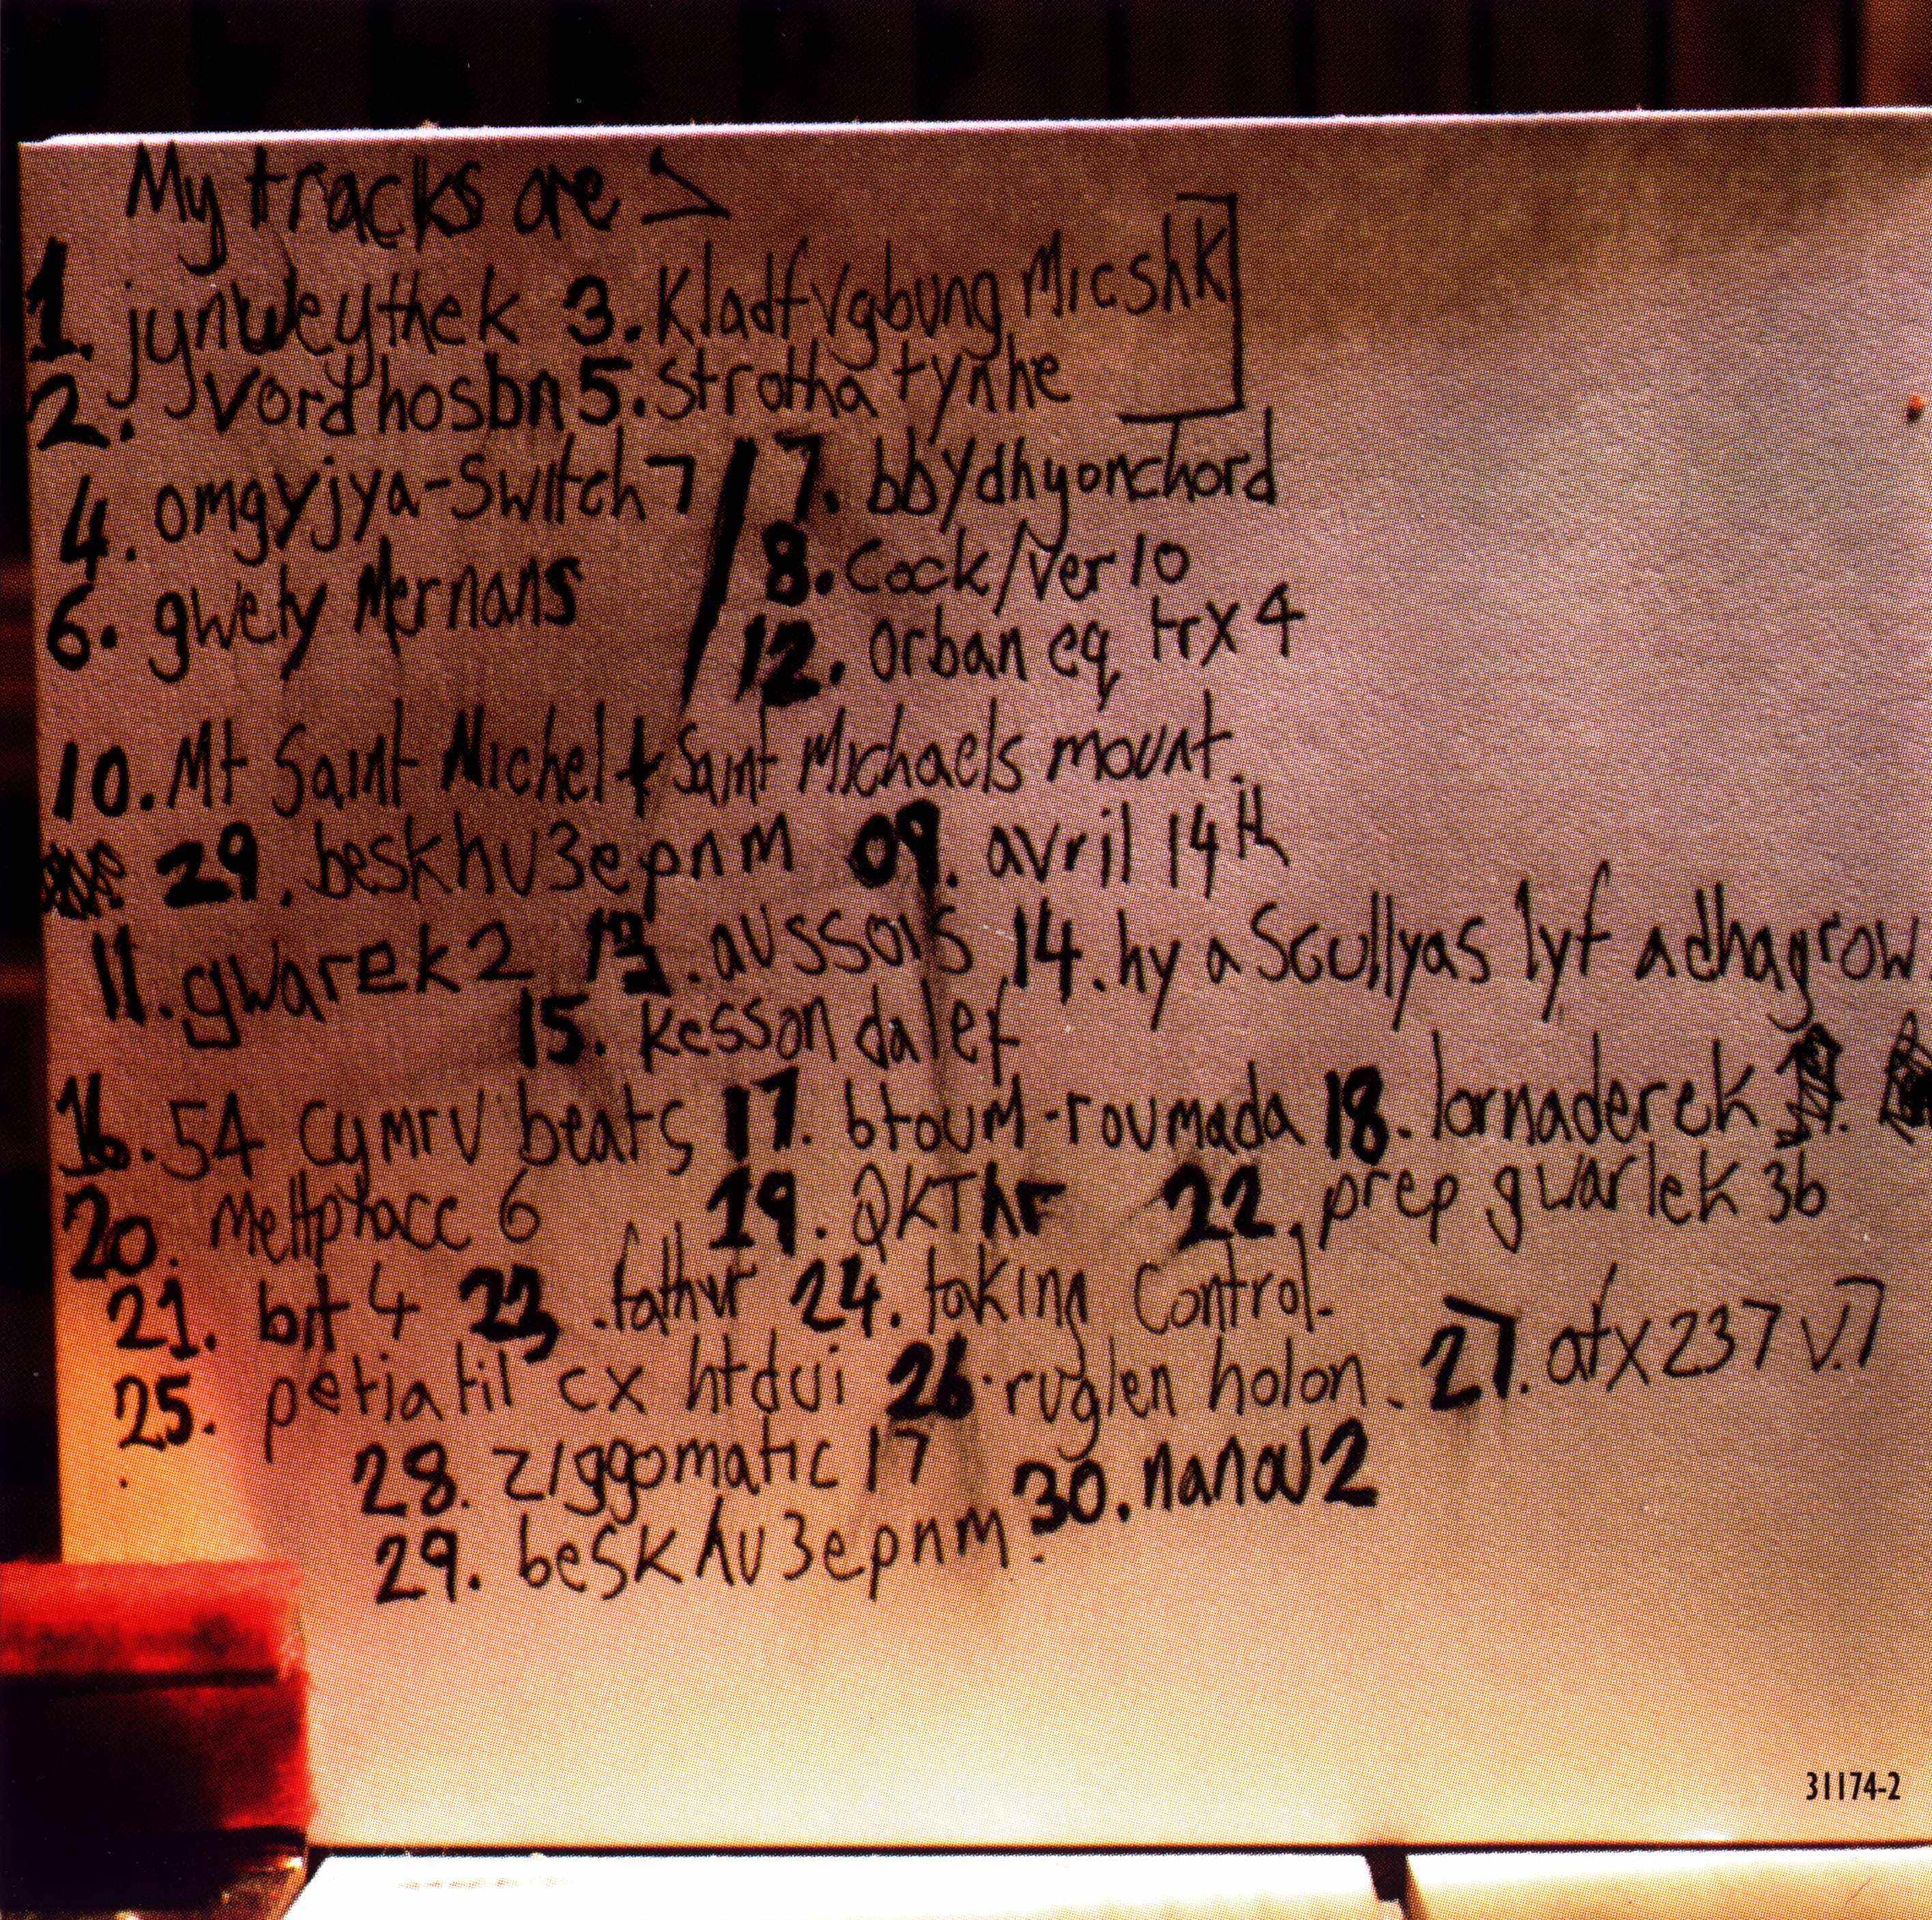 My tracks are >
1. jynweythek 3. Kladfvgbung Micshk
2. Vordhosbn 5. Strotha tynhe
4. omgyjya-Switch 7 / 7. bbydhyonchord
6. gwety Mernans 8. Cock/ver 10
12. orban eq trx 4
10. Mt Saint Michel + Saint Michaels mount.
29. beskhu3epnm 09. avril 14th
11. gwarek 2 13. aussois 14. hy a Scullyas lyf adhagrow
15. kesson dalef
16. 54 cymru beats 17. btoum-roumada 18. lornaderek
20. Meltphace 6 19. QKThr 22. prep gwarlek 3b
21. bit 4 23. fathur 24. taking Control.
25. petiatil cx htdui 26. ruglen holon. 27. afx 237 v.7
28. ziggomatic 17 30. nanou 2
29. beskhu3epnm.
31174-2